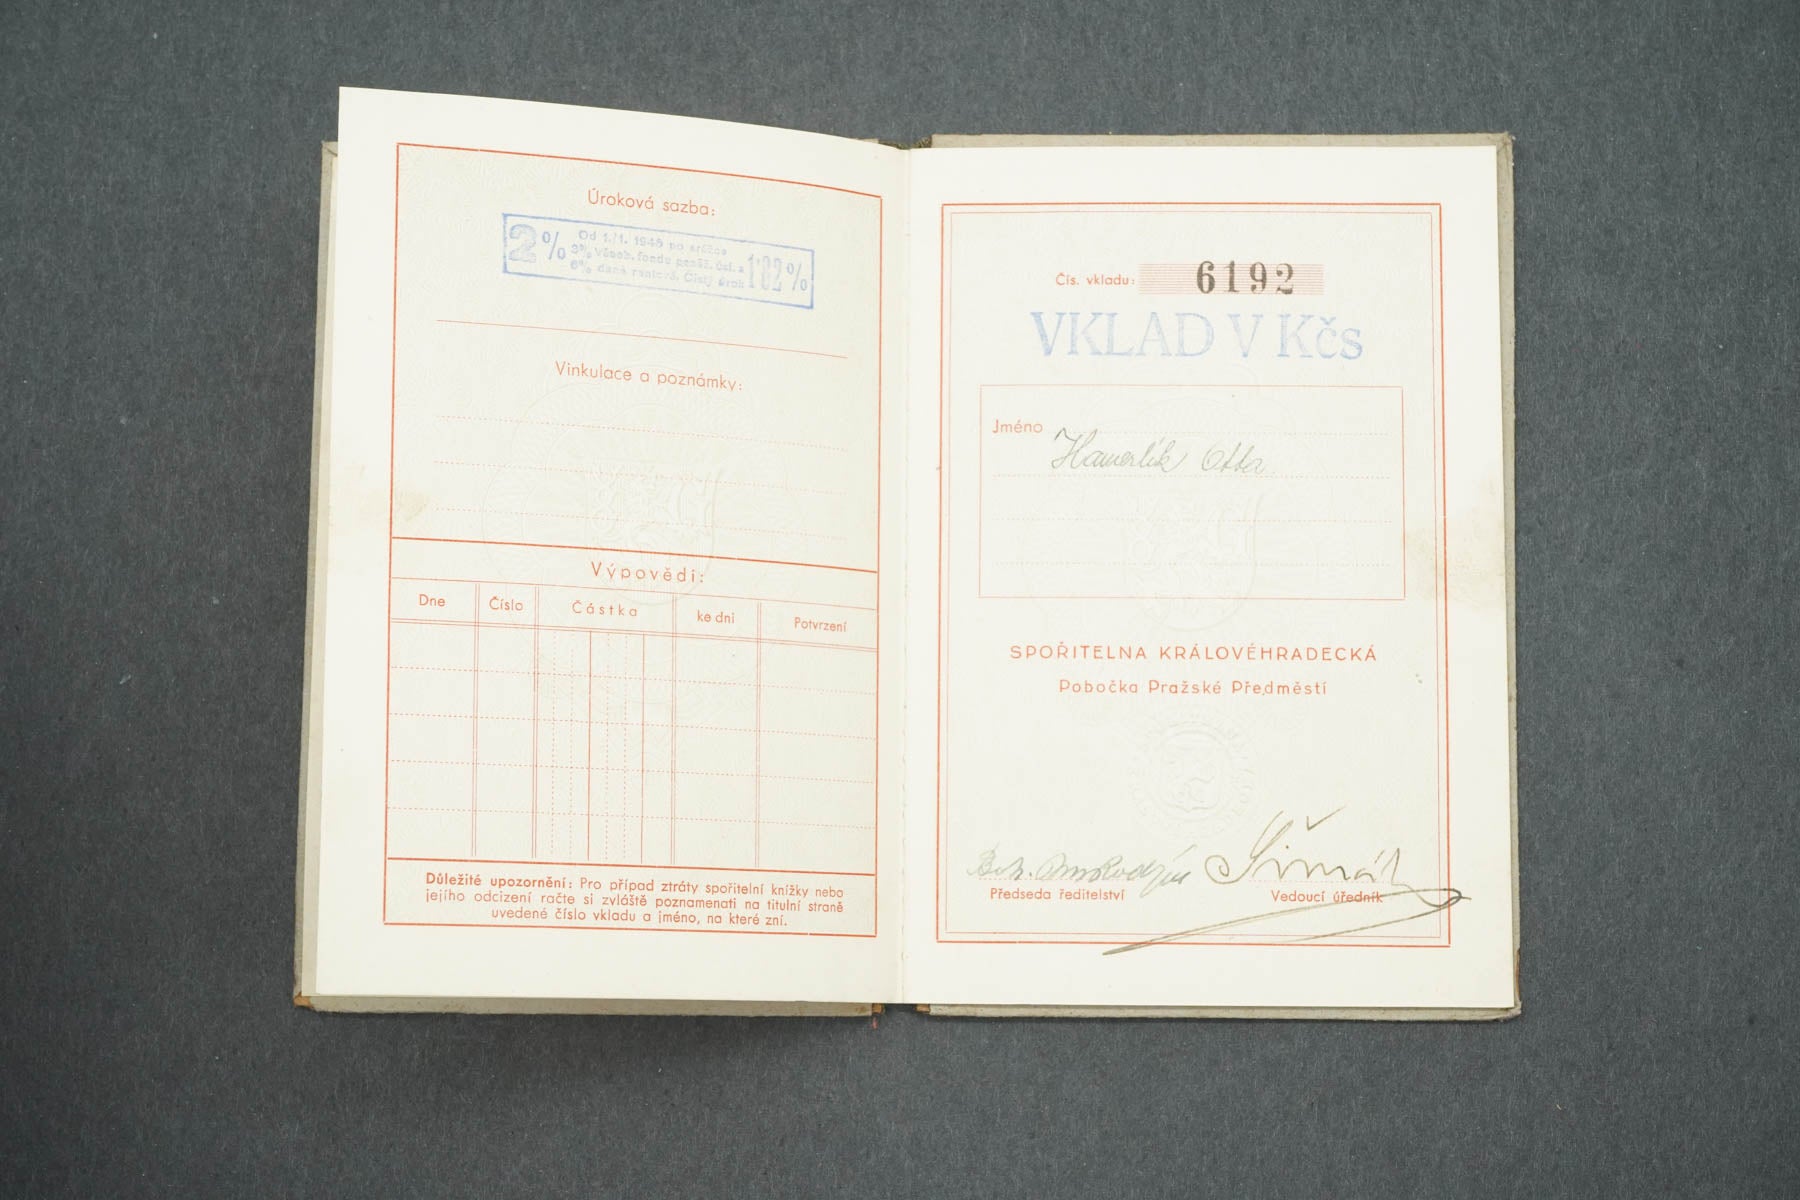 Úroková sazba:
2% Od 1./1. 1946 po srážce
3% všeob. fondu peněž. úst. a
6% daně rentové. Čistý úrok 1'82%
Vinkulace a poznámky:
Výpovědi:
Dne Číslo Částka ke dni Potvrzení
Důležité upozornění: Pro případ ztráty spořitelní knížky nebo
jejího odcizení račte si zvláště poznamenati na titulní straně
uvedené číslo vkladu a jméno, na které zní.
Čís. vkladu: 6192
VKLAD V Kčs
Jméno
Hamerlík Otta
SPOŘITELNA KRÁLOVÉHRADECKÁ
Pobočka Pražské Předměstí
Šimák
Předseda ředitelství Vedoucí úředník